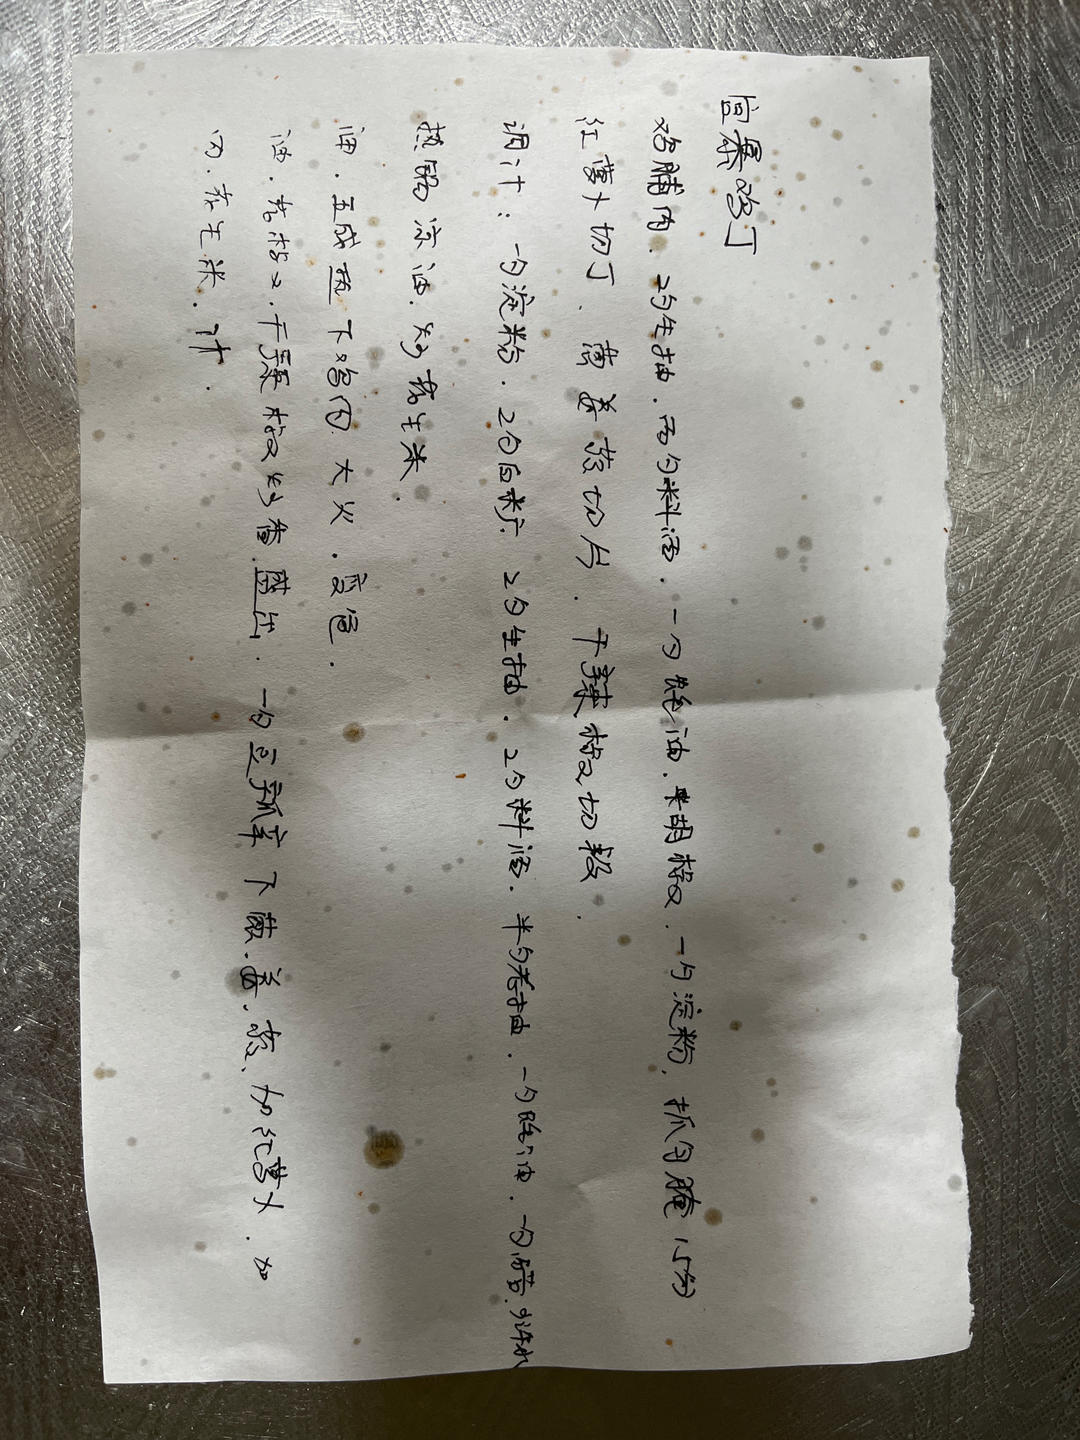 宫暴鸡丁
鸡脯肉. 2勺生抽. 两勺料酒. 一勺蚝油. 黑胡椒. 一勺淀粉. 抓匀腌15分
红萝卜切丁、葱姜蒜切片. 干辣椒切段.
调汁：一勺淀粉. 2勺白糖 2勺生抽. 2勺料酒. 半勺老抽. 一勺蚝油. 一勺醋. 少许水
热锅凉油. 炒花生米.
油. 五成热下鸡肉 大火. 变色.
油. 花椒 干辣椒炒香 盛出. 一勺豆瓣 下葱. 姜. 蒜. 加红萝卜. 加
肉. 花生米. 汁.